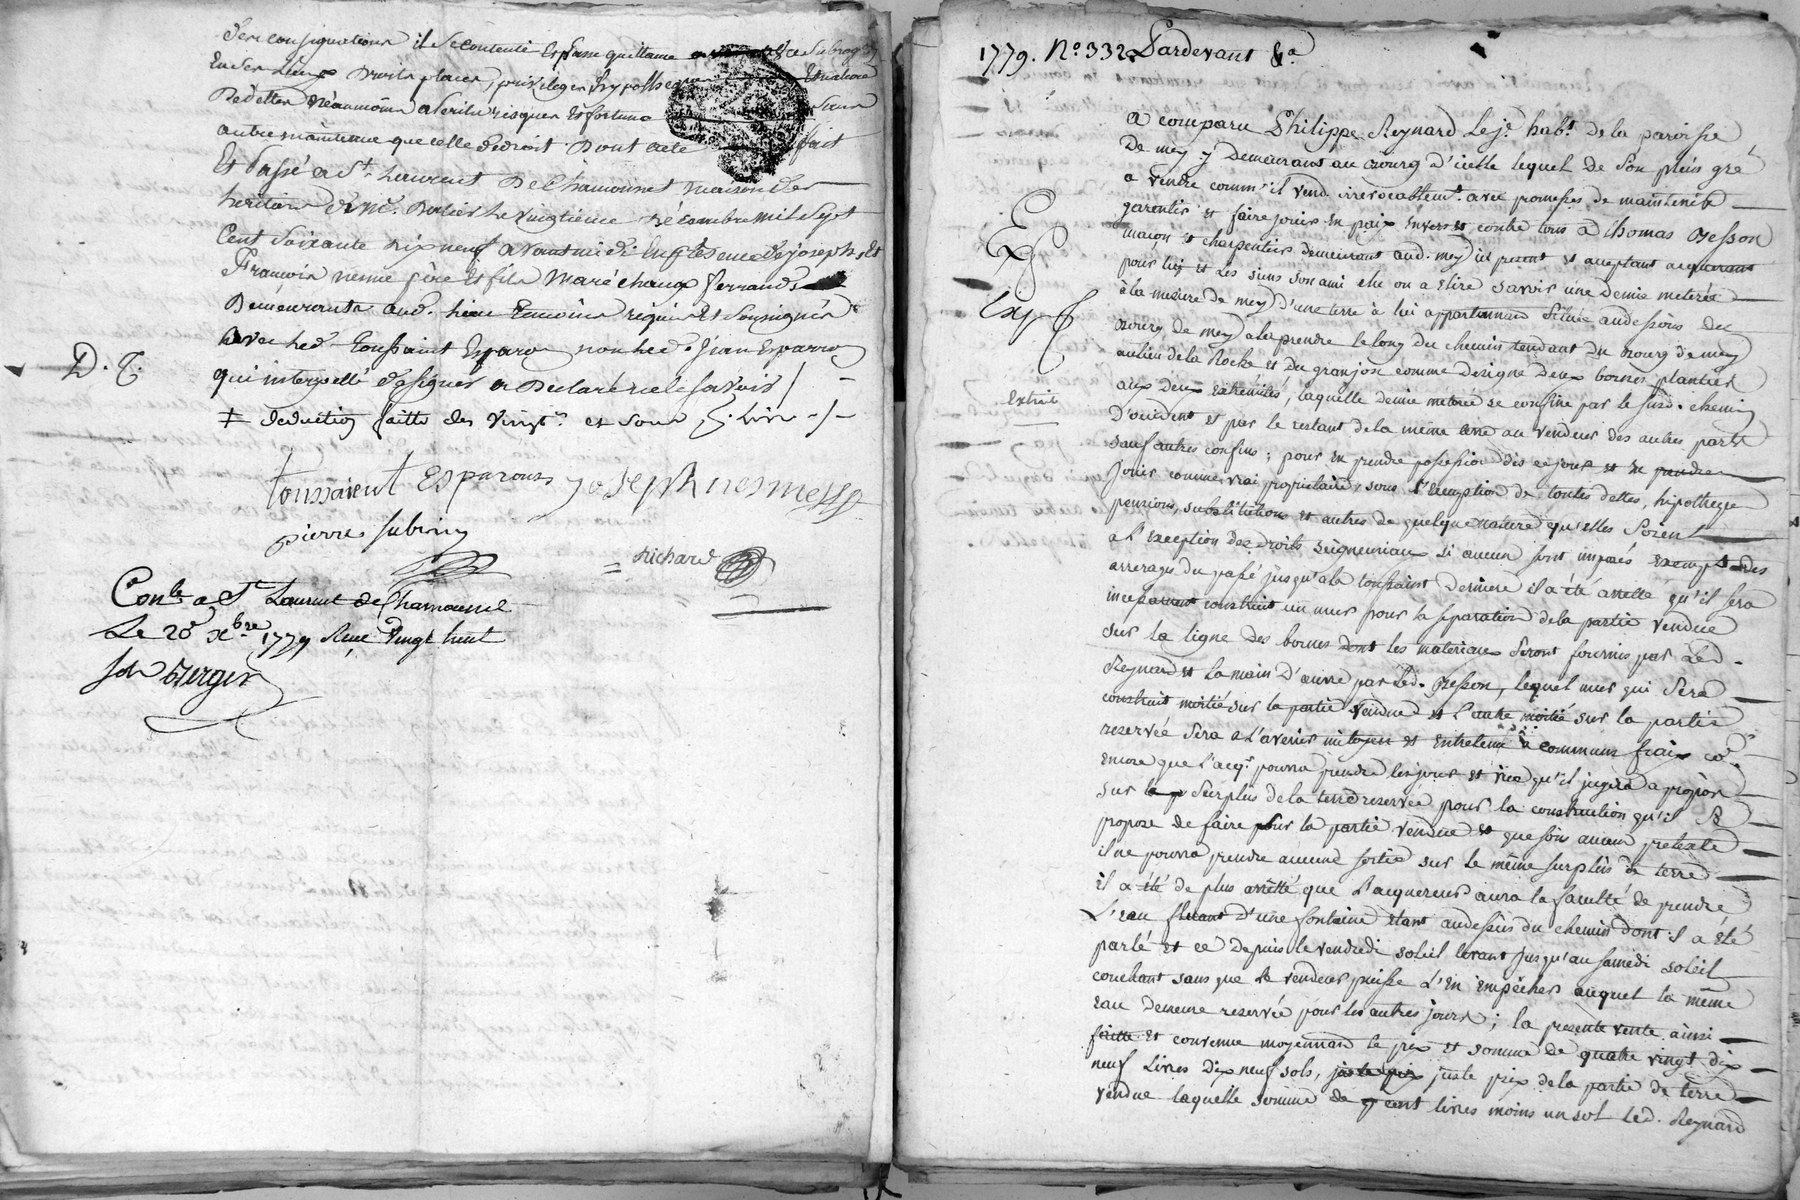 des consignations il se contente Et passe quittance
En ses Lieux Droits places, privileges hypotheques Et nature
De dettes Néanmoins a ses risques Et fortune sans
autre maintenue que celle de droit. Dont acte fait
Et Passé a St. Laurent De Chamousset maison des
heritiers de Me. le vingtieme Décembre mil Sept
Cent Soixante dix neuf avant midi En presence de joseph Et
François pere Et fils Maréchaux ferrands
Demeurants aud. lieu Temoins requis Et Soussignés
avec led. Toussaint Esparon non led. Jean Esparron
qui interpellé de signer a Declaré ne le savoir /. -
D. T.
‡ deduction faitte des vingt.es et sous p. Livre -/-
toussaient Esparoux joseph nesme
pierre subrin
= Richard
Conlé a St Laurent de Chamousset
Le 20e Xbre 1779 Reçu Vingt huit
Sols Berger
1779. No. 332 Pardevant &a
a comparu Philippe Reynard le je. habt. De la paroisse
De mey y Demeurant au Bourg d'icelle lequel de Son plein gré
a vendu comm' il vend irrevocablemt. avec promesses de maintenir
garentir et faire jouir en paix envers et contre tous a Thomas Besson
macon et charpentier demeurant aud. mey ici present et acceptant acquerant
pour lui et les siens son ami elu ou a Elire savoir une demie meterée
à la mesure de mey D'une terre à lui appartenant Située audessous du
Exp
Bourg de mey a la prendre le long du chemin tendant Du Bourg de mey
au lieu de la Roche et du granjon comme Designé Deux bornes plantées
Extrait
aux deux extremités, laquelle demie meterée se confine par le susd. chemin
D'occident et par le restant de la même terre au vendeur des autres parts
sauf autres confins ; pour en prendre possession dès ce jour et en
jouir comme vrai propriétaire sous l'exemption de toutes dettes, hipotheque
pensions, substitutions et autres de quelque nature qu'elles soient
a l'exception des droits seigneuriaux si aucun sont imposés exempts des
arrerages du passé jusqu'a la toussaint derniere il a été arretté qu'il sera
incessament construit un mur pour la separation de la partie vendue
sur la ligne des bornes dont les materiaux seront fournis par led.
Reynard et la main d'œuvre par led. Besson, lequel mur qui sera
construit moitié sur la partie vendue et l'autre moitié sur la partie
reservée sera a l'avenir mitoyen et entretenu a communs frais
encore que l'acqr. pourra prendre les jours et vue qu'il jugera a propos
sur le surplus de la terre reservée pour la construction qu'il se
propose de faire sur la partie vendue et que sous aucun pretexte
il ne pourra prendre aucune sortie sur le même surplus de terre
il a été de plus arrêtté que l'acquereur aura la faculté de prendre
L'eau fluant d'une fontaine etant audessus du chemin dont il a été
parlé et ce depuis le vendredi soleil levant jusqu'au samedi soleil
couchant sans que le vendeur puisse l'en empêcher auquel la même
eau demeure reservée pour les autres jours ; la presente vente ainsi
faitte et convenue moyennant le prix et somme de quatre vingt dix
neuf Livres dix neuf sols, juste prix de la partie de terre
vendue laquelle somme de cent livres moins un sol led. Reynard